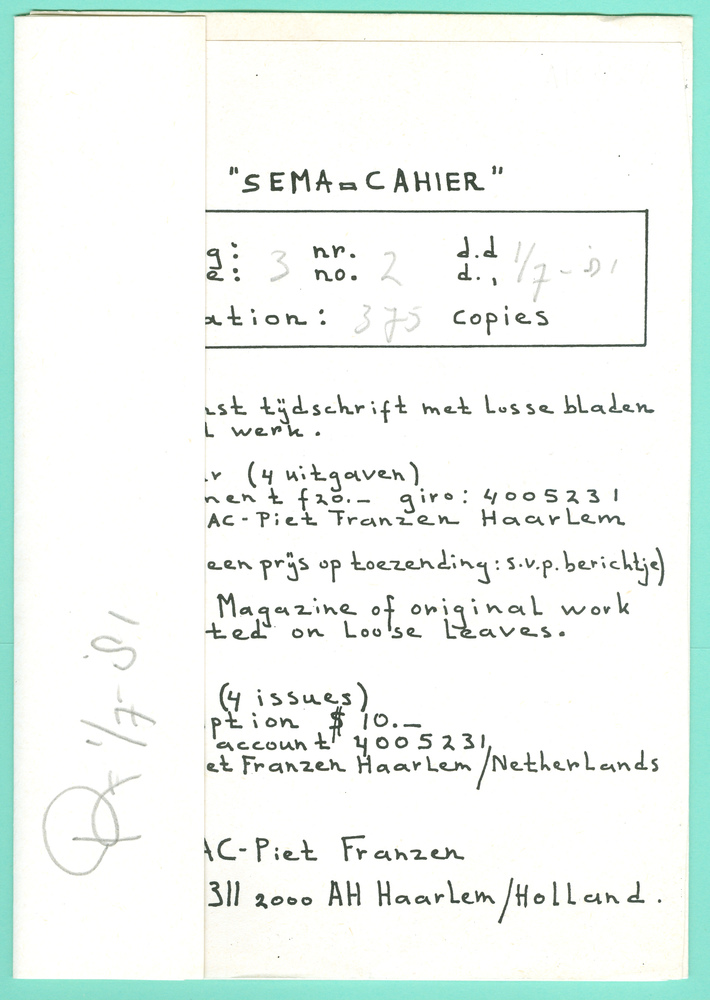 "SEMA=CAHIER"
g: 3 nr. 2 d.d 1/7-'81
e: no. d.,
ation: 375 copies
nst tijdschrift met losse bladen
l werk.
r (4 uitgaven)
ment f20.— giro: 4005231
AC-Piet Franzen Haarlem
een prijs op toezending: s.v.p. berichtje)
Magazine of original work
ted on Loose Leaves.
(4 issues)
ption $ 10.—
account 4005231
et Franzen Haarlem/Netherlands
AC-Piet Franzen
311 2000 AH Haarlem/Holland.
1/7-'81